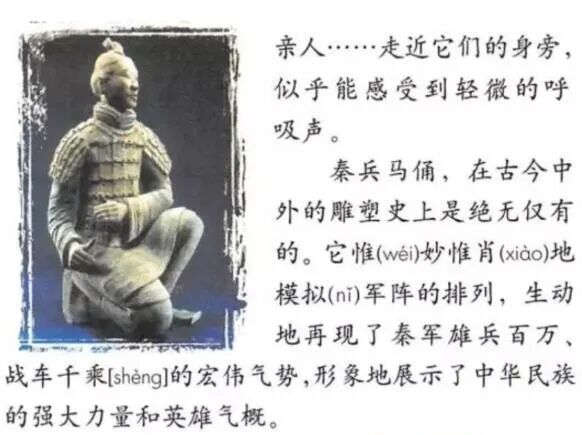 亲人……走近它们的身旁，
似乎能感受到轻微的呼
吸声。
秦兵马俑，在古今中
外的雕塑史上是绝无仅有
的。它惟(wéi)妙惟肖(xiào)地
模拟(nǐ)军阵的排列，生动
地再现了秦军雄兵百万、
战车千乘[shèng]的宏伟气势，形象地展示了中华民族
的强大力量和英雄气概。